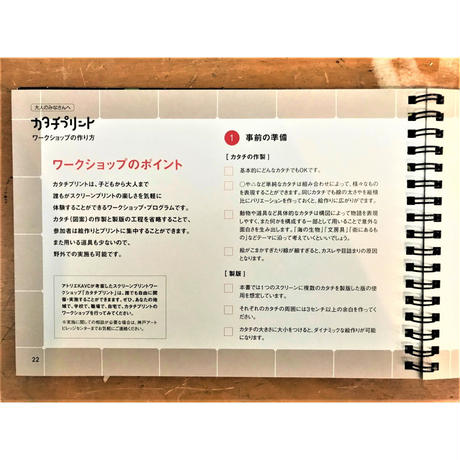 大人のみなさんへ
カタチプリント
ワークショップの作り方
ワークショップのポイント
カタチプリントは、子どもから大人まで
誰もがスクリーンプリントの楽しさを気軽に
体験することができるワークショップ・プログラムです。
カタチ（図案）の作製と製版の工程を省略することで、
参加者は絵作りとプリントに集中することができます。
また用いる道具も少ないので、
野外での実施も可能です。
アトリエKAVCが考案したスクリーンプリントワー
クショップ「カタチプリント」は、誰でも自由に開
催・実施することができます。ぜひ、あなたの地
域で、学校で、職場で、自宅で、カタチプリントの
ワークショップを行ってみてください。
※実施に関しての相談が必要な場合は、神戸アート
ビレッジセンターまでお気軽にご連絡ください。
22
1 事前の準備
[ カタチの作製 ]
基本的にどんなカタチでもOKです。
○や△など単純なカタチは組み合わせによって、様々なもの
を表現することができます。同じカタチでも線の太さや縦横
比にバリエーションを作っておくと、絵作りに広がりがでます。
動物や道具など具体的なカタチは構図によって物語を表現
しやすく、また何かを構成する一部として用いることで意外な
面白さを生み出します。「海の生物」「文房具」「街にあるも
の」などテーマに沿って考えていくといいでしょう。
絵がこまかすぎたり線が細すぎると、カスレや目詰まりの原因
となります。
[ 製版 ]
本書では1つのスクリーンに複数のカタチを製版した版の使
用を想定しています。
それぞれのカタチの周囲には3センチ以上の余白を作ってく
ださい。
カタチの大きさに大小をつけると、ダイナミックな絵作りが可能
になります。